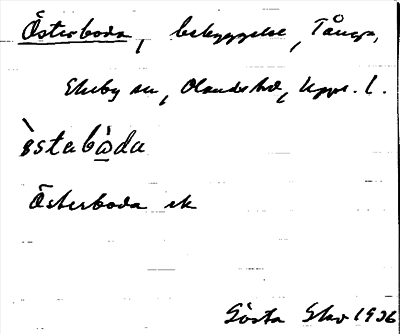 Österboda, bebyggelse, Tånga,
Ekeby sn, Olands hd, Uppl. l.
östabòda
Österboda ek
Gösta 1936